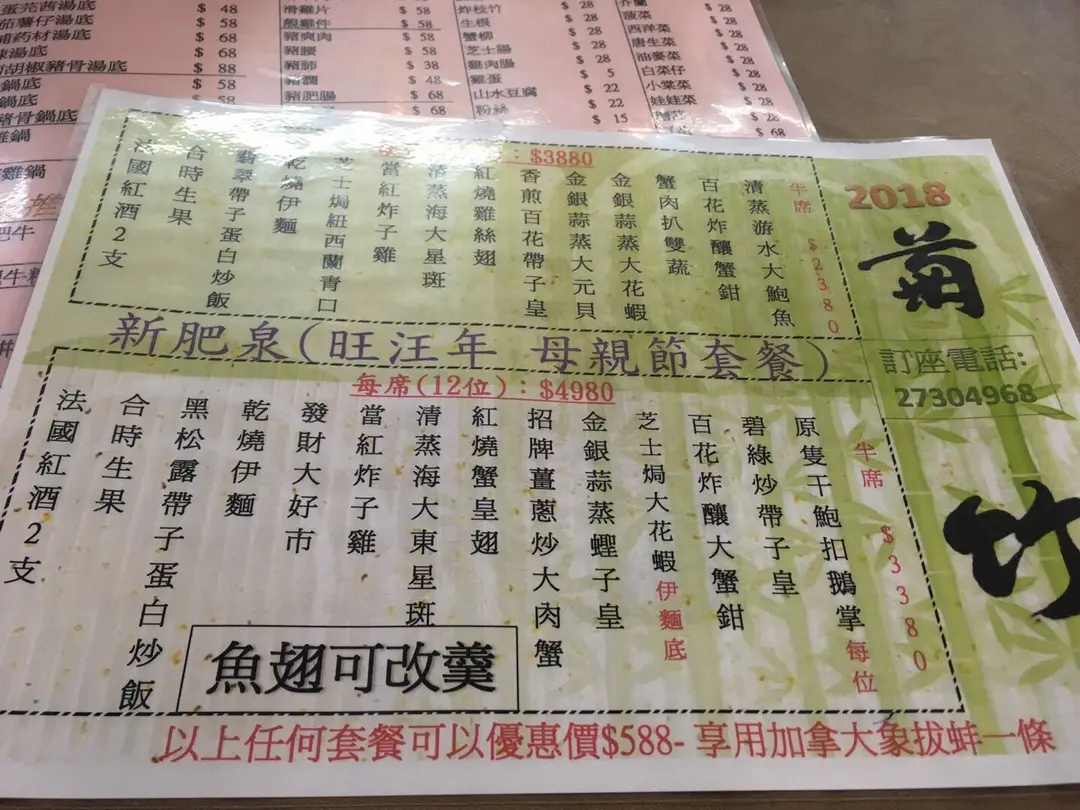 蛋芫茜湯底 $ 48
茄薯仔湯底 $ 58
補药材湯底 $ 68
辣湯底 $ 68
胡椒豬骨湯底 $ 88
鍋底 $
鍋底 $
豬骨鍋底 $
雞鍋
雞鍋
滑雞片 $ 58
靚雞件 $ 58
豬爽肉 $ 58
豬腰 $ 58
豬肺 $ 38
豬膶 $ 48
豬肥腸 $ 68
炸枝竹 $ 28
生根 $ 28
蟹柳 $ 28
芝士腸 $ 28
雞肉腸 $ 28
雞蛋 $ 5
山水豆腐 $ 22
粉絲 $ 22
$ 15
芥蘭
菠菜 $ 28
西洋菜 $ 28
唐生菜 $ 28
油麥菜 $ 28
白菜仔 $ 28
小棠菜 $ 28
娃娃菜 $ 28
$ 68
2018
菊
竹
訂座電話:
27304968
: $3880
半席 $2380
清蒸游水大鮑魚
百花炸釀蟹鉗
蟹肉扒雙蔬
金銀蒜蒸大花蝦
金銀蒜蒸大元貝
香煎百花帶子皇
紅燒雞絲翅
清蒸海大星斑
當紅炸子雞
芝士焗紐西蘭青口
乾燒伊麵
翡翠帶子蛋白炒飯
合時生果
法國紅酒2支
新肥泉(旺汪年 母親節套餐)
每席(12位): $4980
半席 $3380
原隻干鮑扣鵝掌每位
碧綠炒帶子皇
百花炸釀大蟹鉗
芝士焗大花蝦伊麵底
金銀蒜蒸蟶子皇
招牌薑蔥炒大肉蟹
紅燒蟹皇翅
清蒸海大東星斑
當紅炸子雞
發財大好市
乾燒伊麵
黑松露帶子蛋白炒飯
合時生果
法國紅酒2支
魚翅可改羹
以上任何套餐可以優惠價$588- 享用加拿大象拔蚌一條